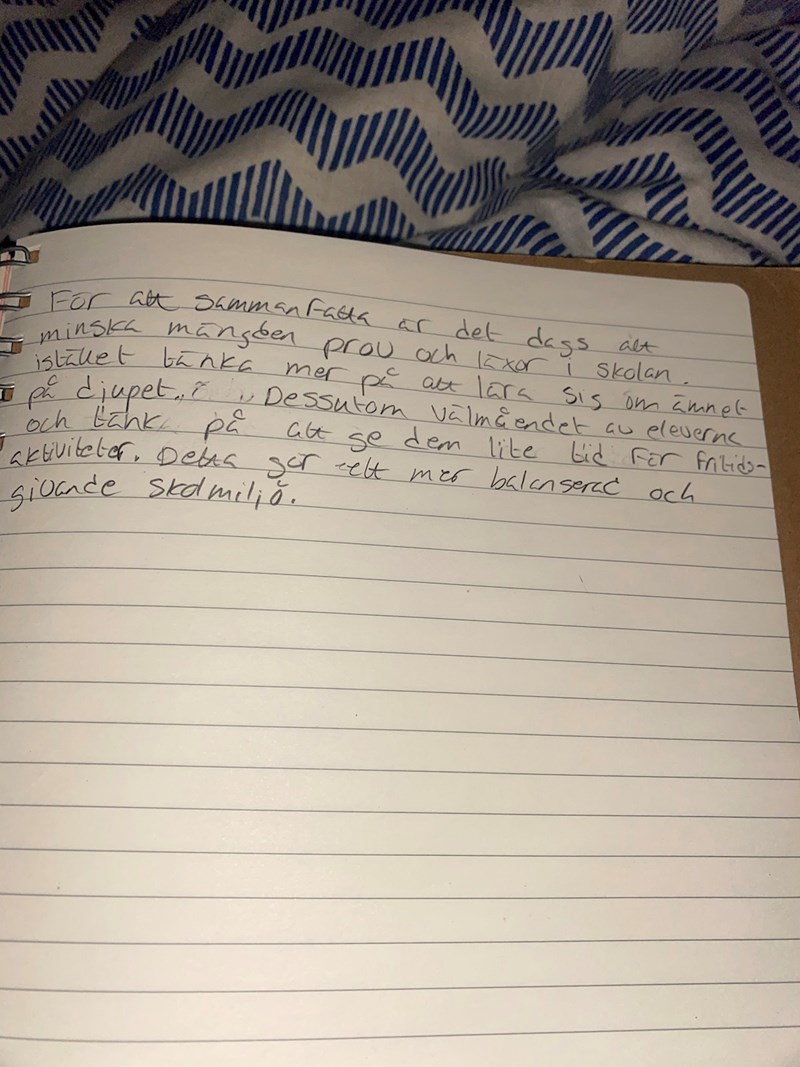 För att sammanfatta är det dags att
minska mängden prov och läxor i skolan.
istället tänka mer på att lära sig om ämnet
på djupet. Dessutom välmåendet av eleverna
och tänk på att ge dem lite tid för fritids-
aktiviteter. Detta ger ett mer balanserad och
givande skolmiljö.